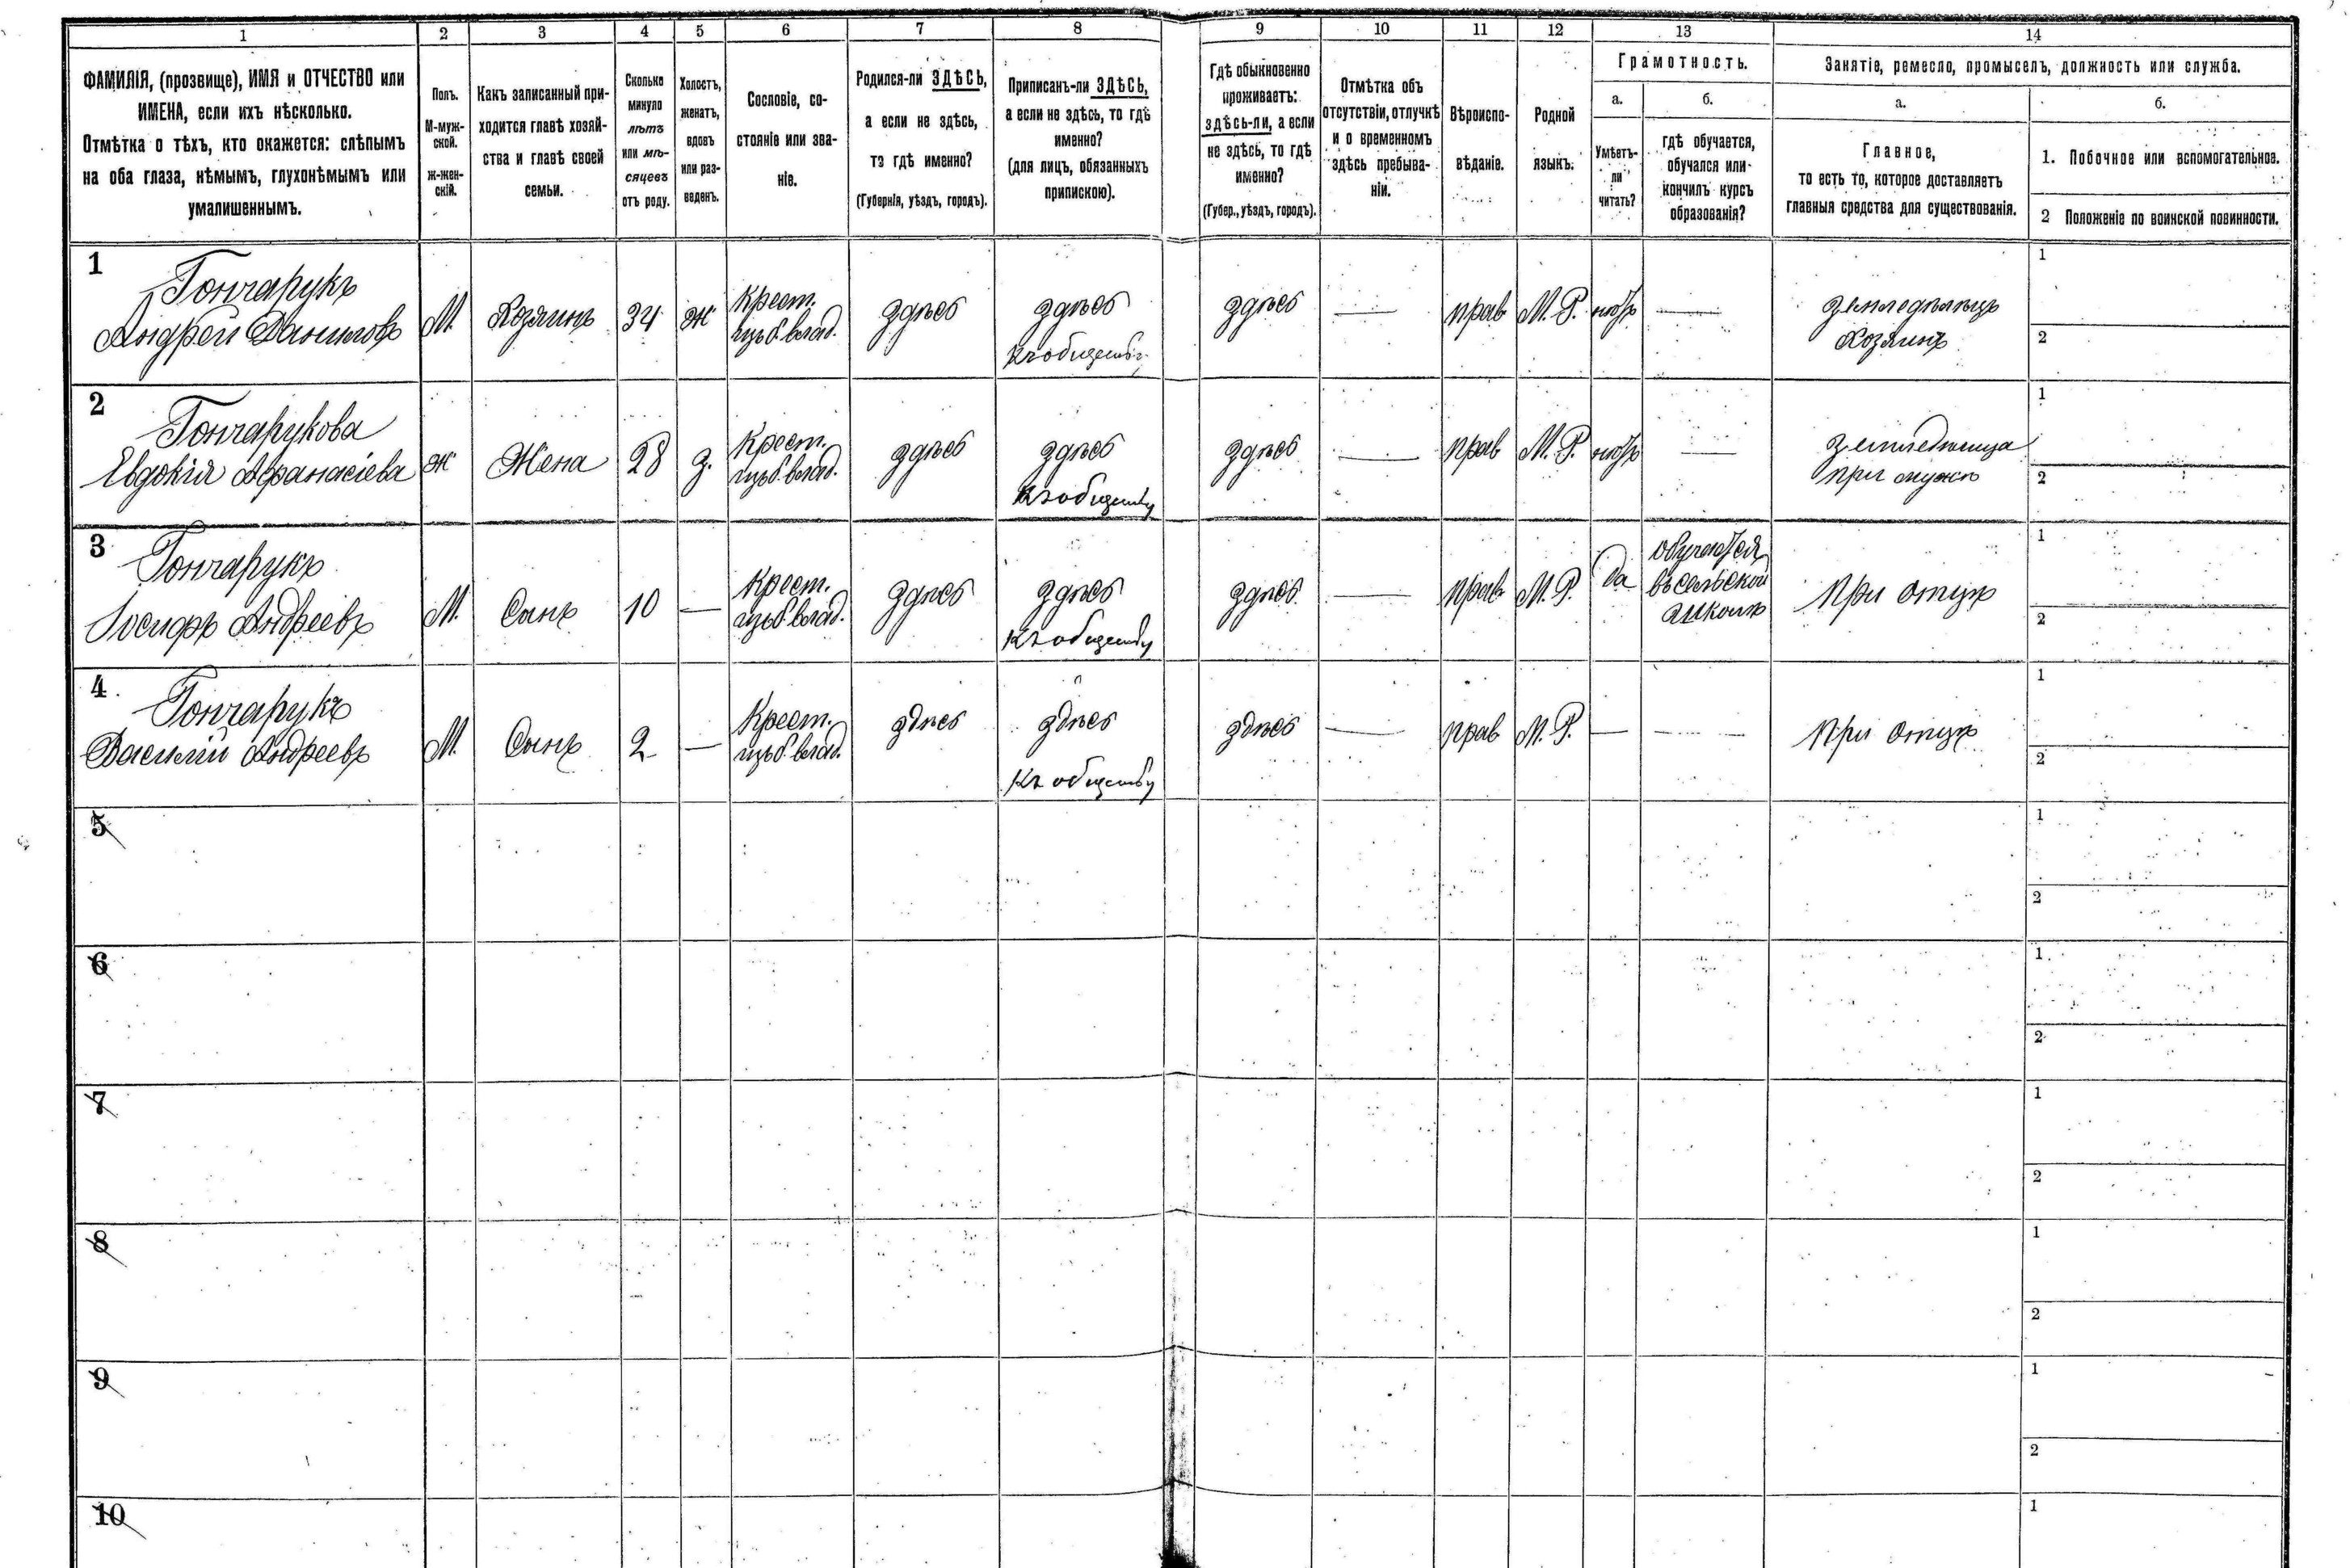 1 2 3 4 5 6 7 8 9 10 11 12 13 14
ФАМИЛІЯ, (прозвище), ИМЯ и ОТЧЕСТВО или
ИМЕНА, если ихъ нѣсколько.
Отмѣтка о тѣхъ, кто окажется: слѣпымъ
на оба глаза, нѣмымъ, глухонѣмымъ или
умалишеннымъ.
Полъ.
М-муж-
ской.
ж-жен-
скій.
Какъ записанный при-
ходится главѣ хозяй-
ства и главѣ своей
семьи.
Сколько
минуло
лѣтъ
или мѣ-
сяцевъ
отъ роду.
Холостъ,
женатъ,
вдовъ
или раз-
веденъ.
Сословіе, со-
стояніе или зва-
ніе.
Родился-ли ЗДѢСЬ,
а если не здѣсь,
то гдѣ именно?
(Губернія, уѣздъ, городъ).
Приписанъ-ли ЗДѢСЬ,
а если не здѣсь, то гдѣ
именно?
(для лицъ, обязанныхъ
припискою).
Гдѣ обыкновенно
проживаетъ:
здѣсь-ли, а если
не здѣсь, то гдѣ
именно?
(Губер., уѣздъ, городъ).
Отмѣтка объ
отсутствіи, отлучкѣ
и о временномъ
здѣсь пребыва-
ніи.
Вѣроиспо-
вѣданіе.
Родной
языкъ.
Грамотность.
а.
Умѣетъ-
ли
читать?
б.
гдѣ обучается,
обучался или
кончилъ курсъ
образованія?
Занятіе, ремесло, промыселъ, должность или служба.
а.
Главное,
то есть то, которое доставляетъ
главныя средства для существованія.
б.
1. Побочное или вспомогательное.
2 Положеніе по воинской повинности.
1
Гончарукъ
Андрей Даниловъ
М.
Хозяинъ
34
ж
Крест.
изъ б. влад.
здѣсь
здѣсь
къ обществу
здѣсь
—
прав
М. Р.
нѣтъ
—
земледѣлецъ
хозяинъ
1
2
2
Гончарукова
Евдокія Афанасіева
ж
Жена
28
з.
Крест.
изъ б. влад.
здѣсь
здѣсь
къ обществу
здѣсь
—
прав
М. Р.
нѣтъ
—
при мужѣ
1
2
3
Гончарукъ
Іосифъ Андреевъ
М.
Сынъ
10
—
Крест.
изъ б. влад.
здѣсь
здѣсь
къ обществу
здѣсь
—
прав
М. Р.
да
обучается
въ сельской
школѣ
при отцѣ
1
2
4
Гончарукъ
Василій Андреевъ
М.
Сынъ
2
—
Крест.
изъ б. влад.
здѣсь
здѣсь
къ обществу
здѣсь
—
прав
М. Р.
—
—
при отцѣ
1
2
5
1
2
6
1
2
7
1
2
8
1
2
9
1
2
10
1